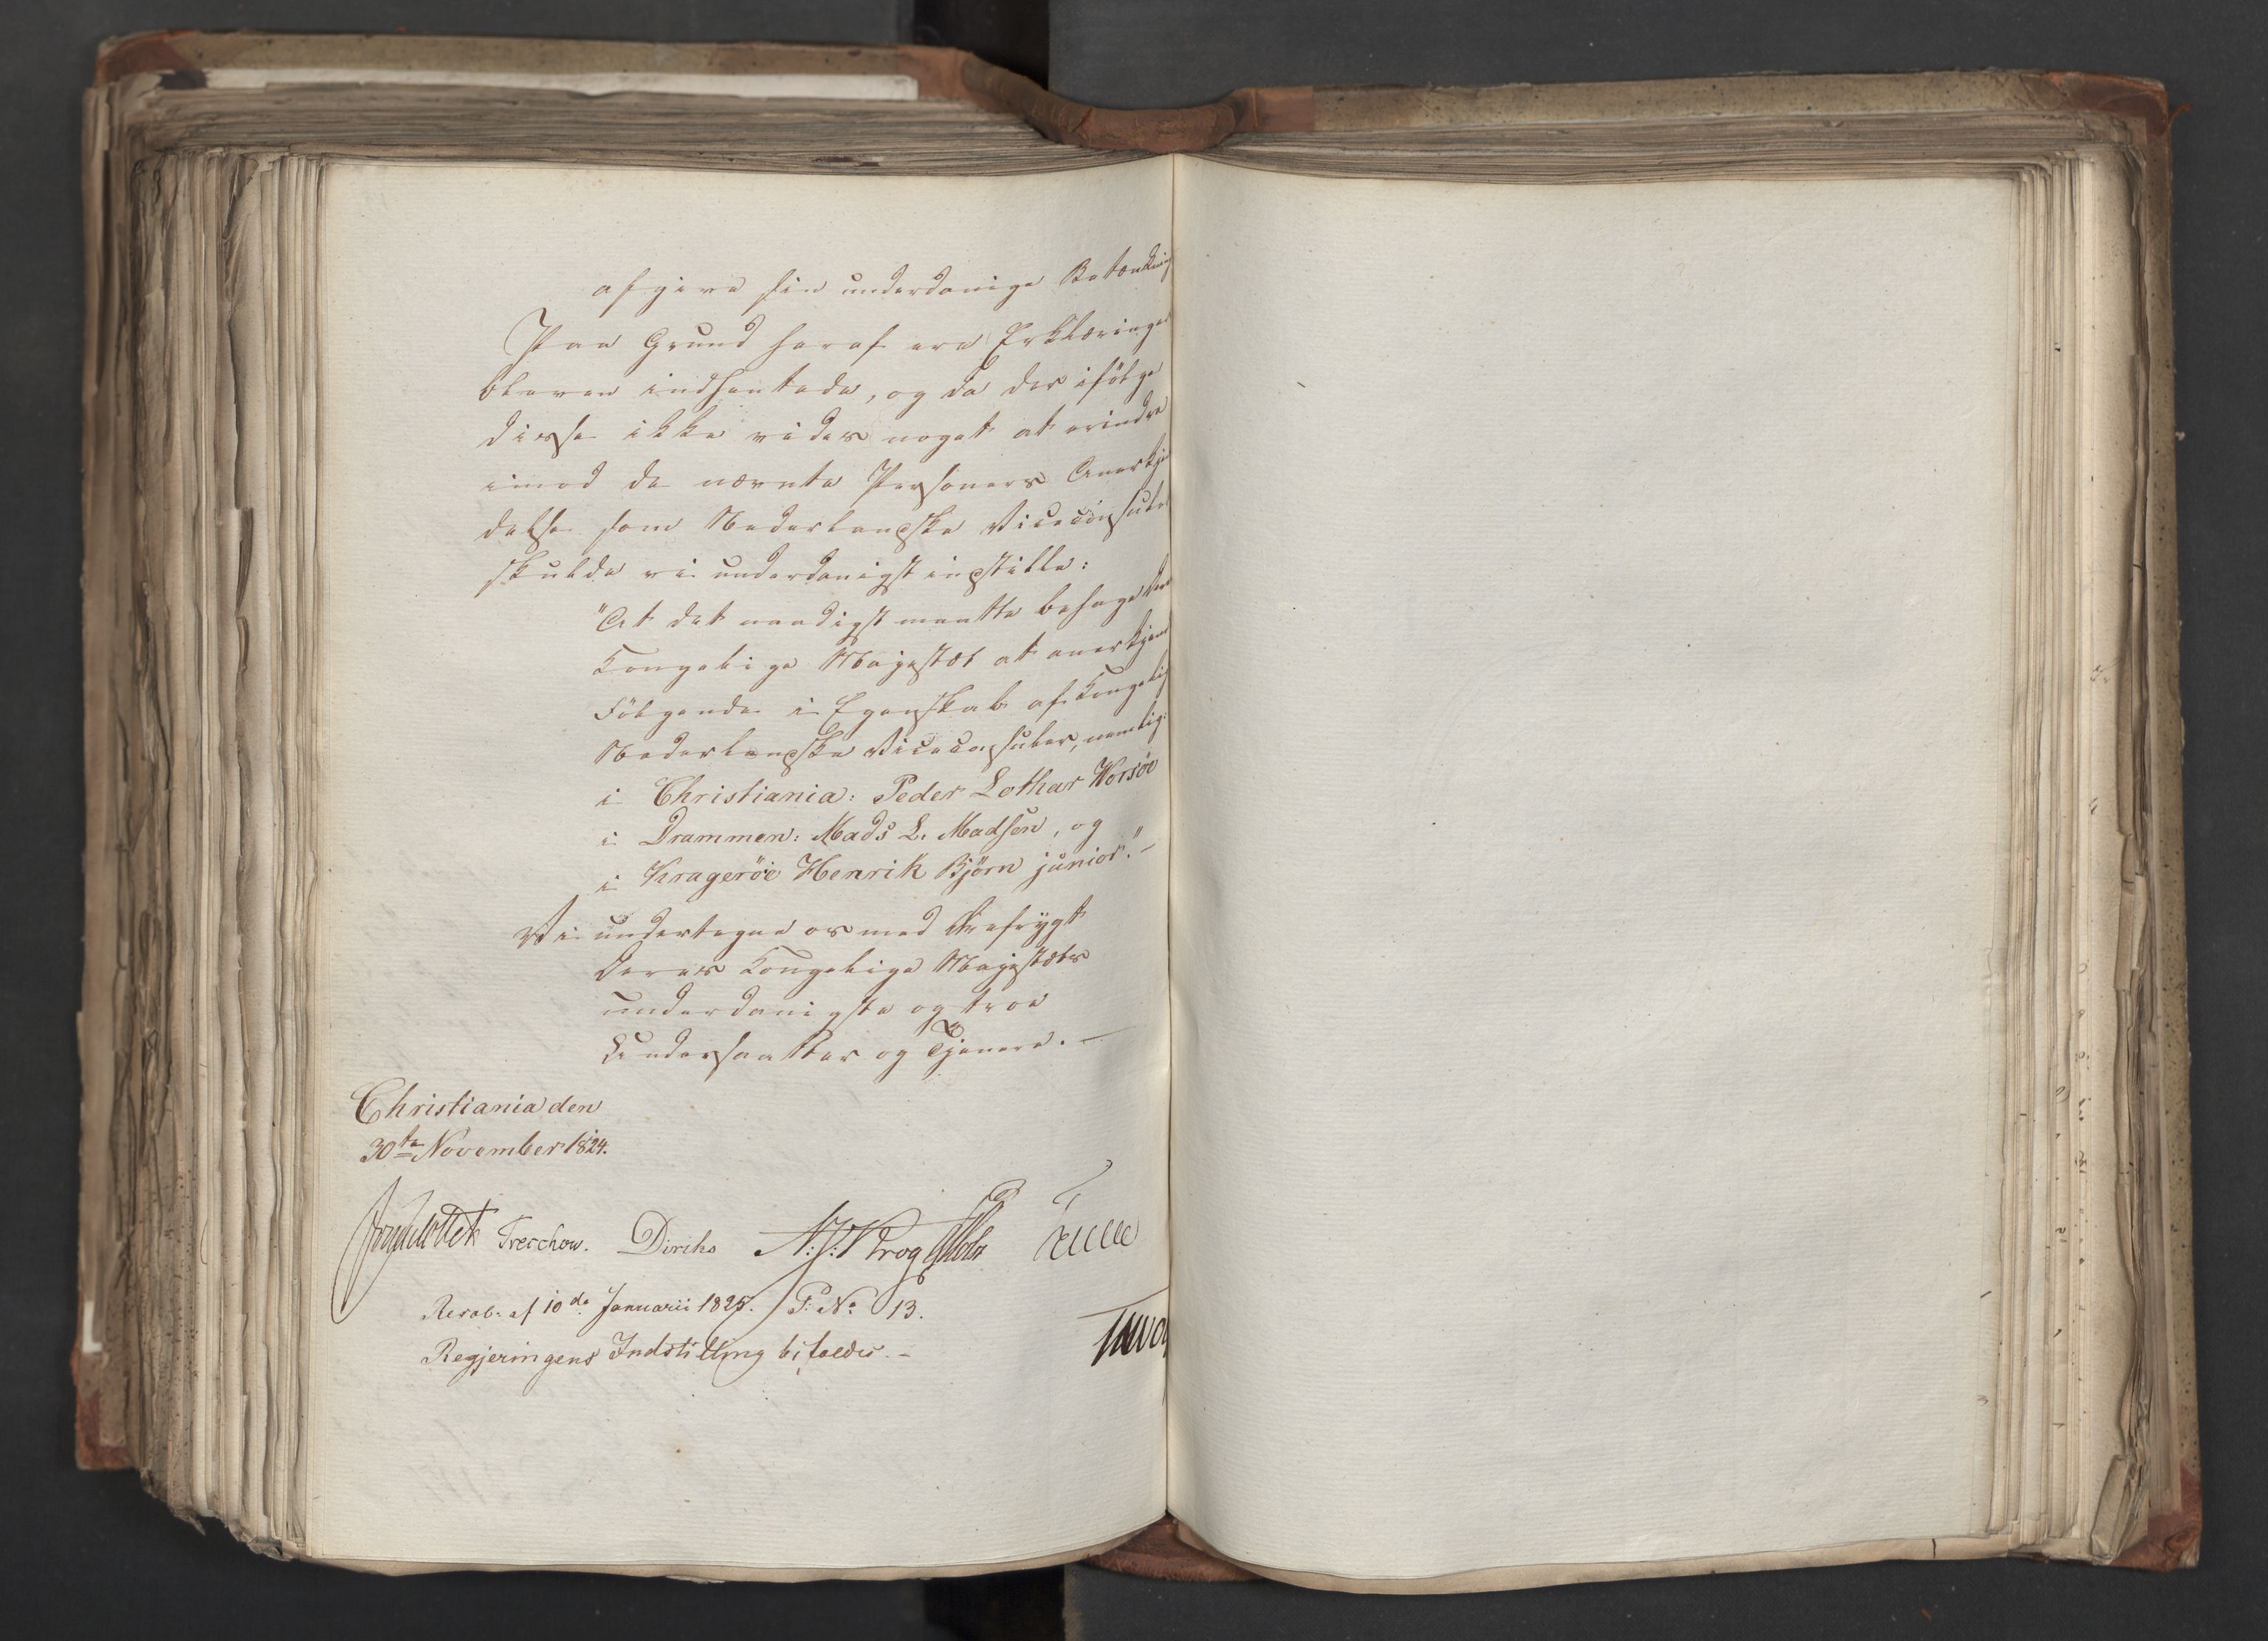 afgive sin underdanige Betænkning
Paa Grund heraf ere Erklæringer
bleven indhentede, og da der ifölge
disse ikke vides noget at erindre
imod de nævnte Personers Anerkjen
delse som Nederlandske Viceconsuler
skulde vi underdanigst indstille:
"At det naadigst maatte behage Deres
Kongelige Majestæt at anerkjende
Fölgende i Egenskab af Kongelig
Nederlandske Viceconsuler, nemlig:
i Christiania: Peder Lothar Worsöe
i Drammen: Mads L. Madsen, og
i Kragerøe Henrik Björn junior." –
Vi undertegne os med Ærefrygt
Deres Kongelige Majestæts
underdanigste og troe
Undersaatter og Tjenere. –
Christiania den
30te November 1824.
Treschow. Diriks N: J: Krog
Resol: af 10de Januarii 1825. P: No 13.
Regjeringens Indstilling bifaldes. –